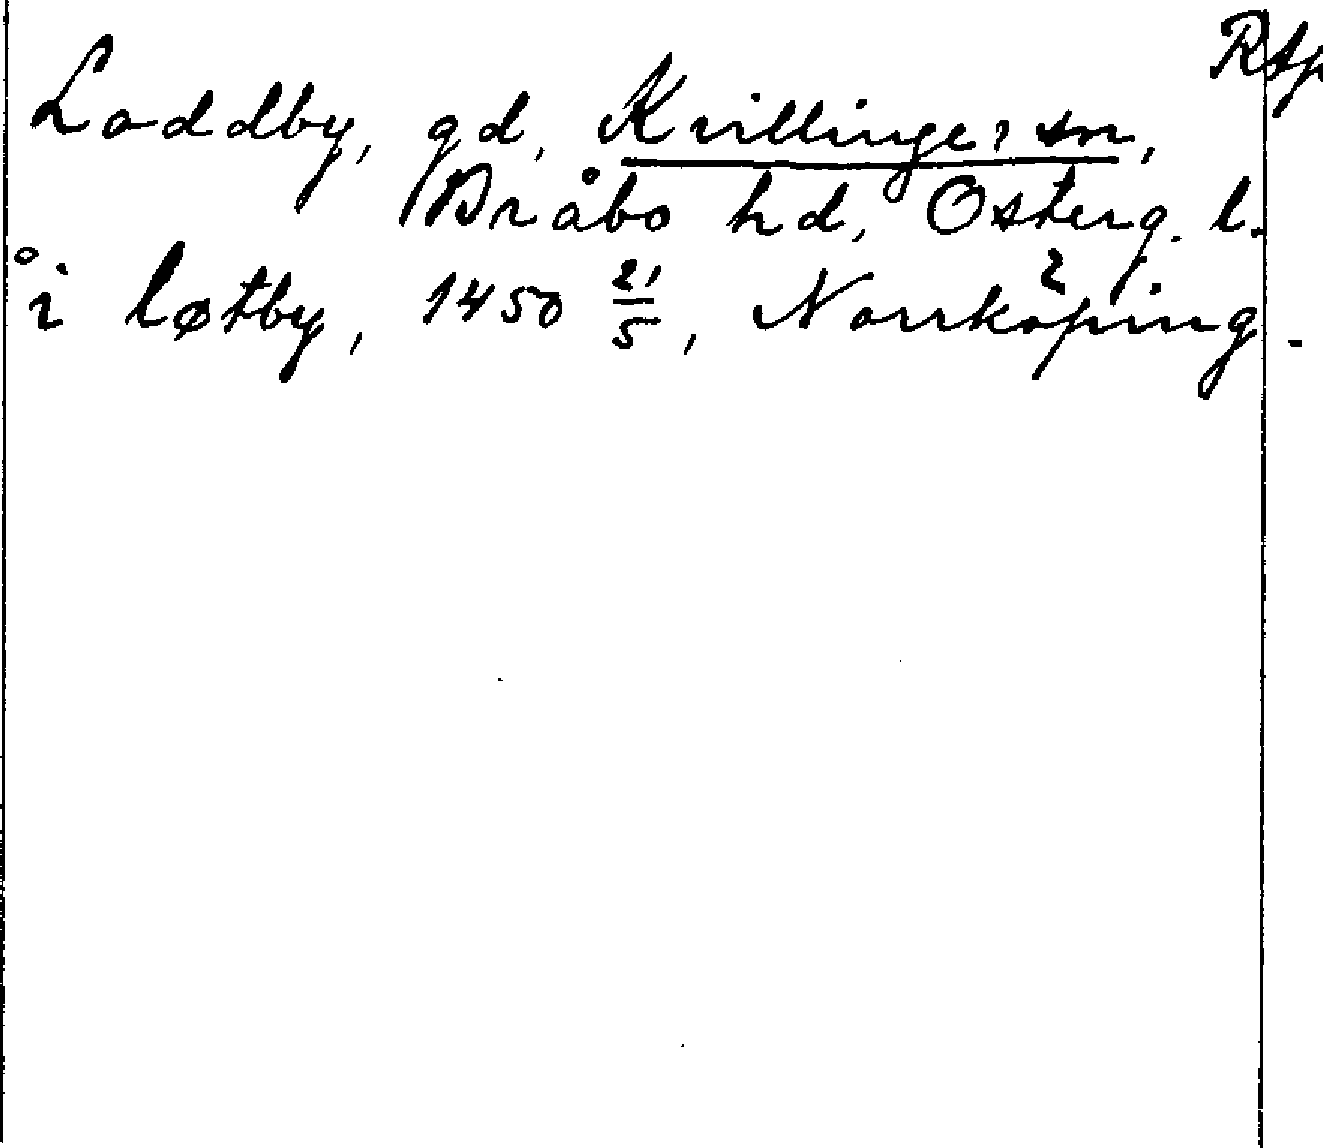 Rtp
Loddby, gd, Kvillinge sn,
Bråbo hd, Österg. l.
i løtby, 1450 21/5, Norrköping.